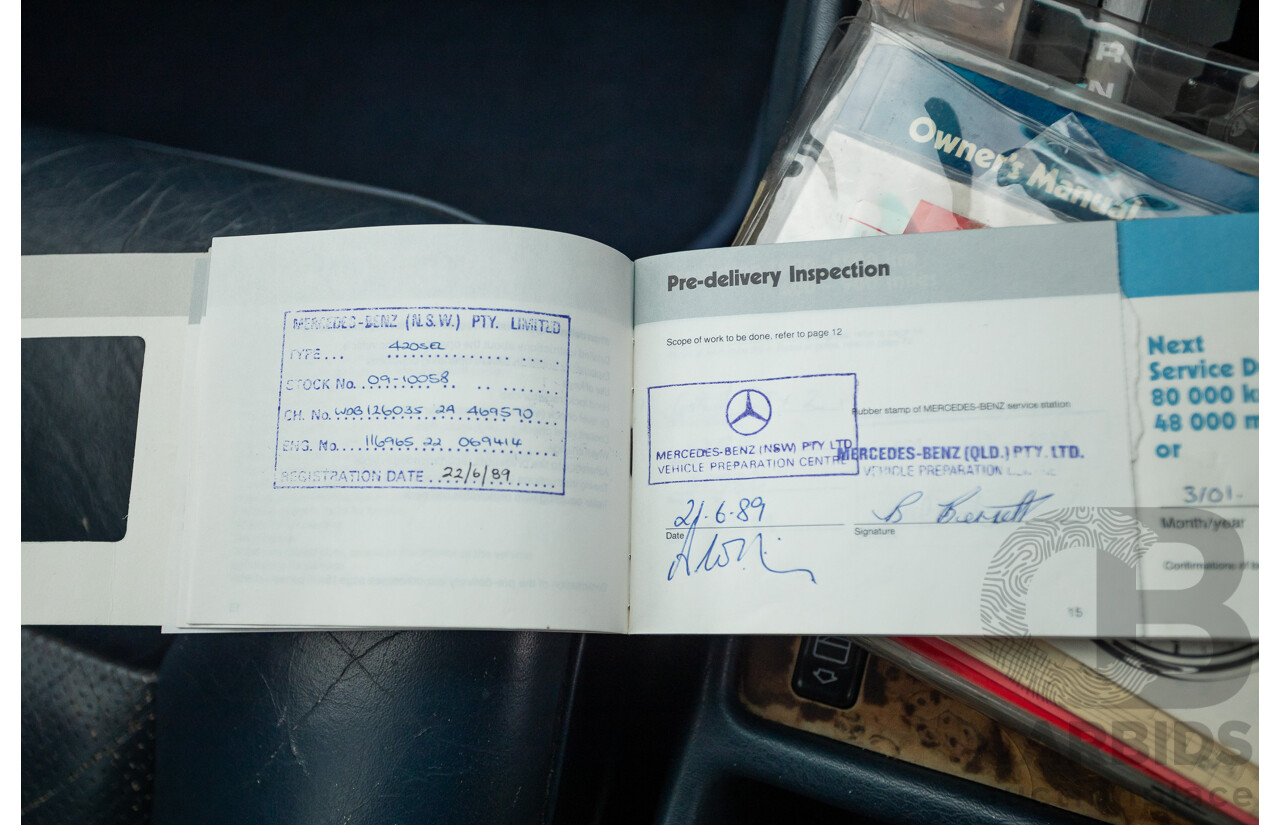 R
N
Owner's Manual
MERCEDES-BENZ (N.S.W.) PTY. LIMITED
TYPE... 420SEL
STOCK No. 09-10058
CH. No. WDB 126035 2A 469570
ENG. No. 116965 22 069414
REGISTRATION DATE 22/6/89
Pre-delivery Inspection
Scope of work to be done, refer to page 12
Rubber stamp of MERCEDES-BENZ service station
MERCEDES-BENZ (NSW) PTY LTD
VEHICLE PREPARATION CENTRE
MERCEDES-BENZ (QLD.) PTY. LTD.
VEHICLE PREPARATION
21-6-89
Date
Signature
15
Next
Service
80 000
48 000
or
Month/year